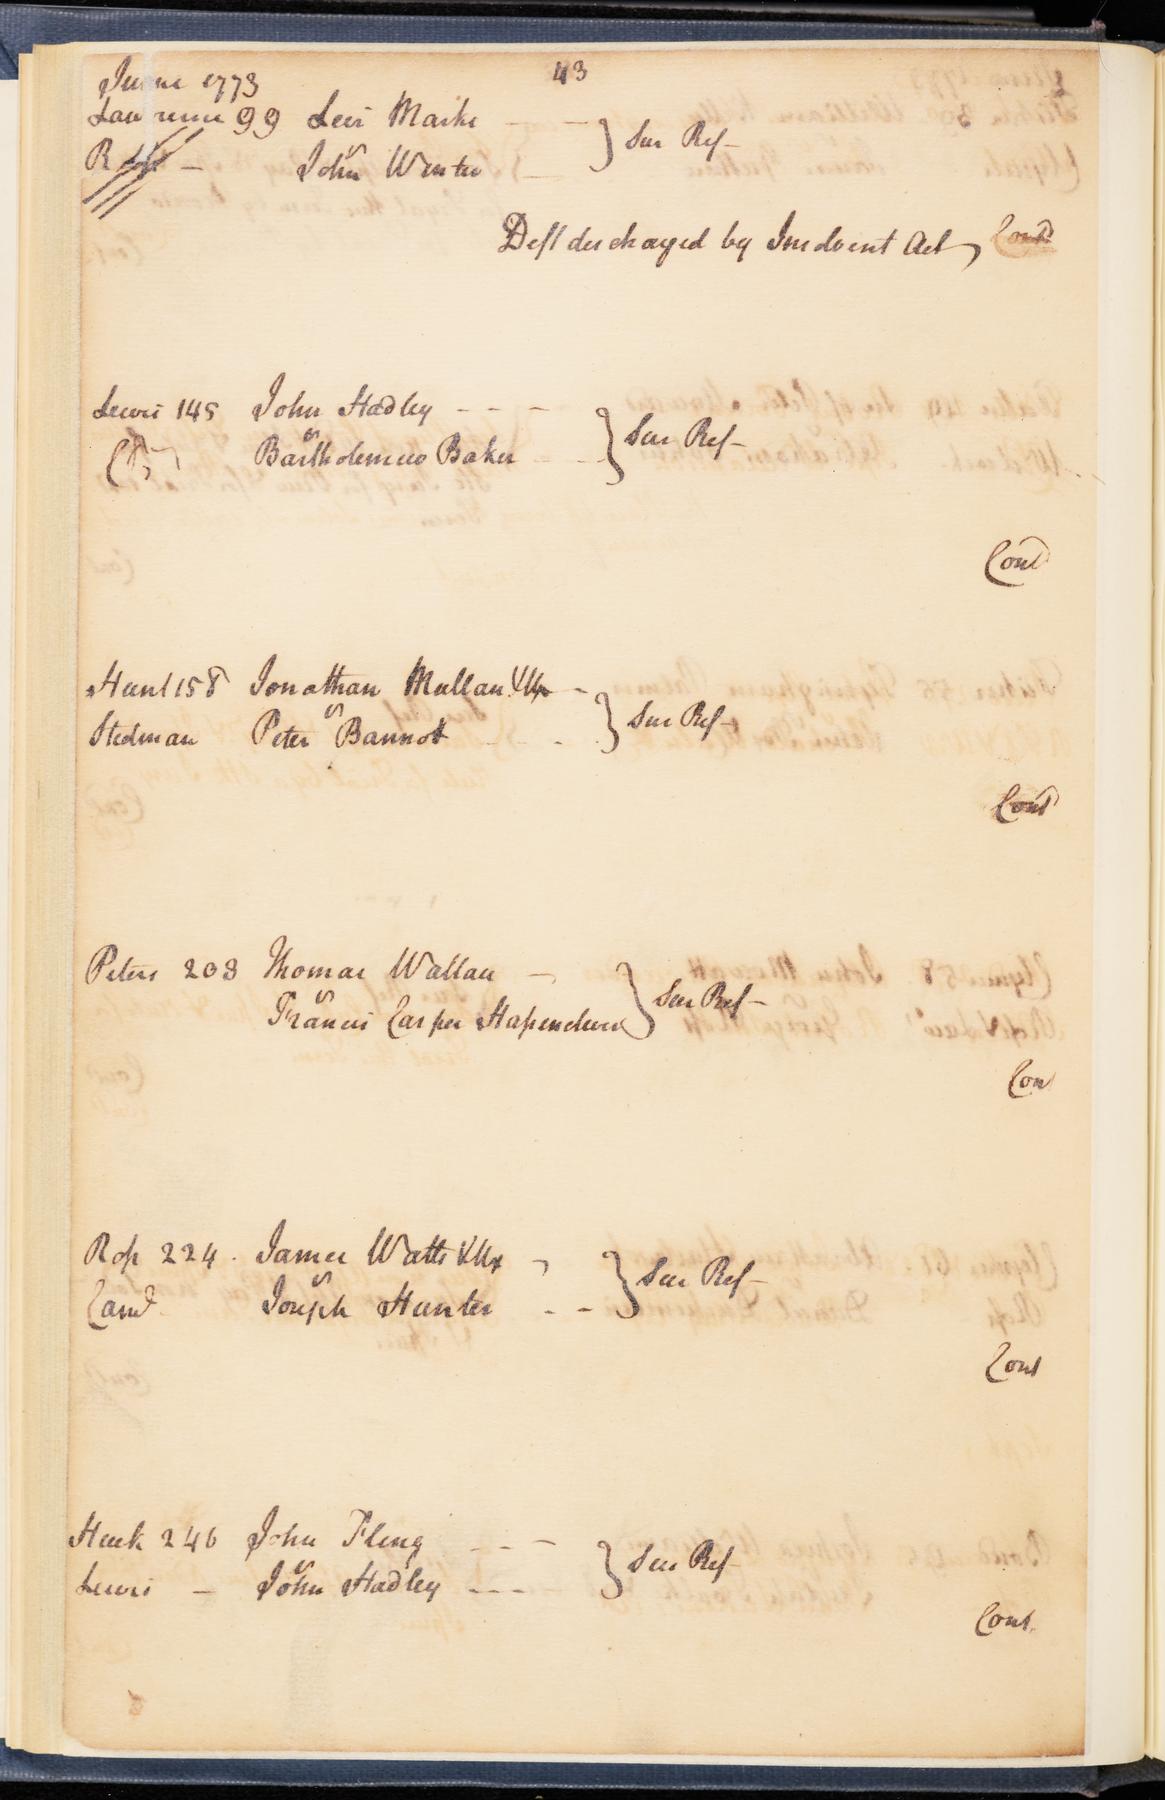 June 1773
43
Lawrence 99 Levi Marks
vs
John Winter
} Sur Ref
Deft discharged by Insolvent Act
Cont
Lewis 145 John Hadley
vs
Bartholemew Baker
} Sur Ref
Cont
Hunt 158 Jonathan Mullan & Ux
vs
Stedman Peter Bannot
} Sur Ref
Cont
Peters 208 Thomas Wallau
vs
Francis Casper
} Sur Ref
Con
Ross 224 James Watts & Ux
vs
Joseph Hunter
} Sur Ref
Cont
246 John Fleng
vs
Lewis John Hadley
} Sur Ref
Cont